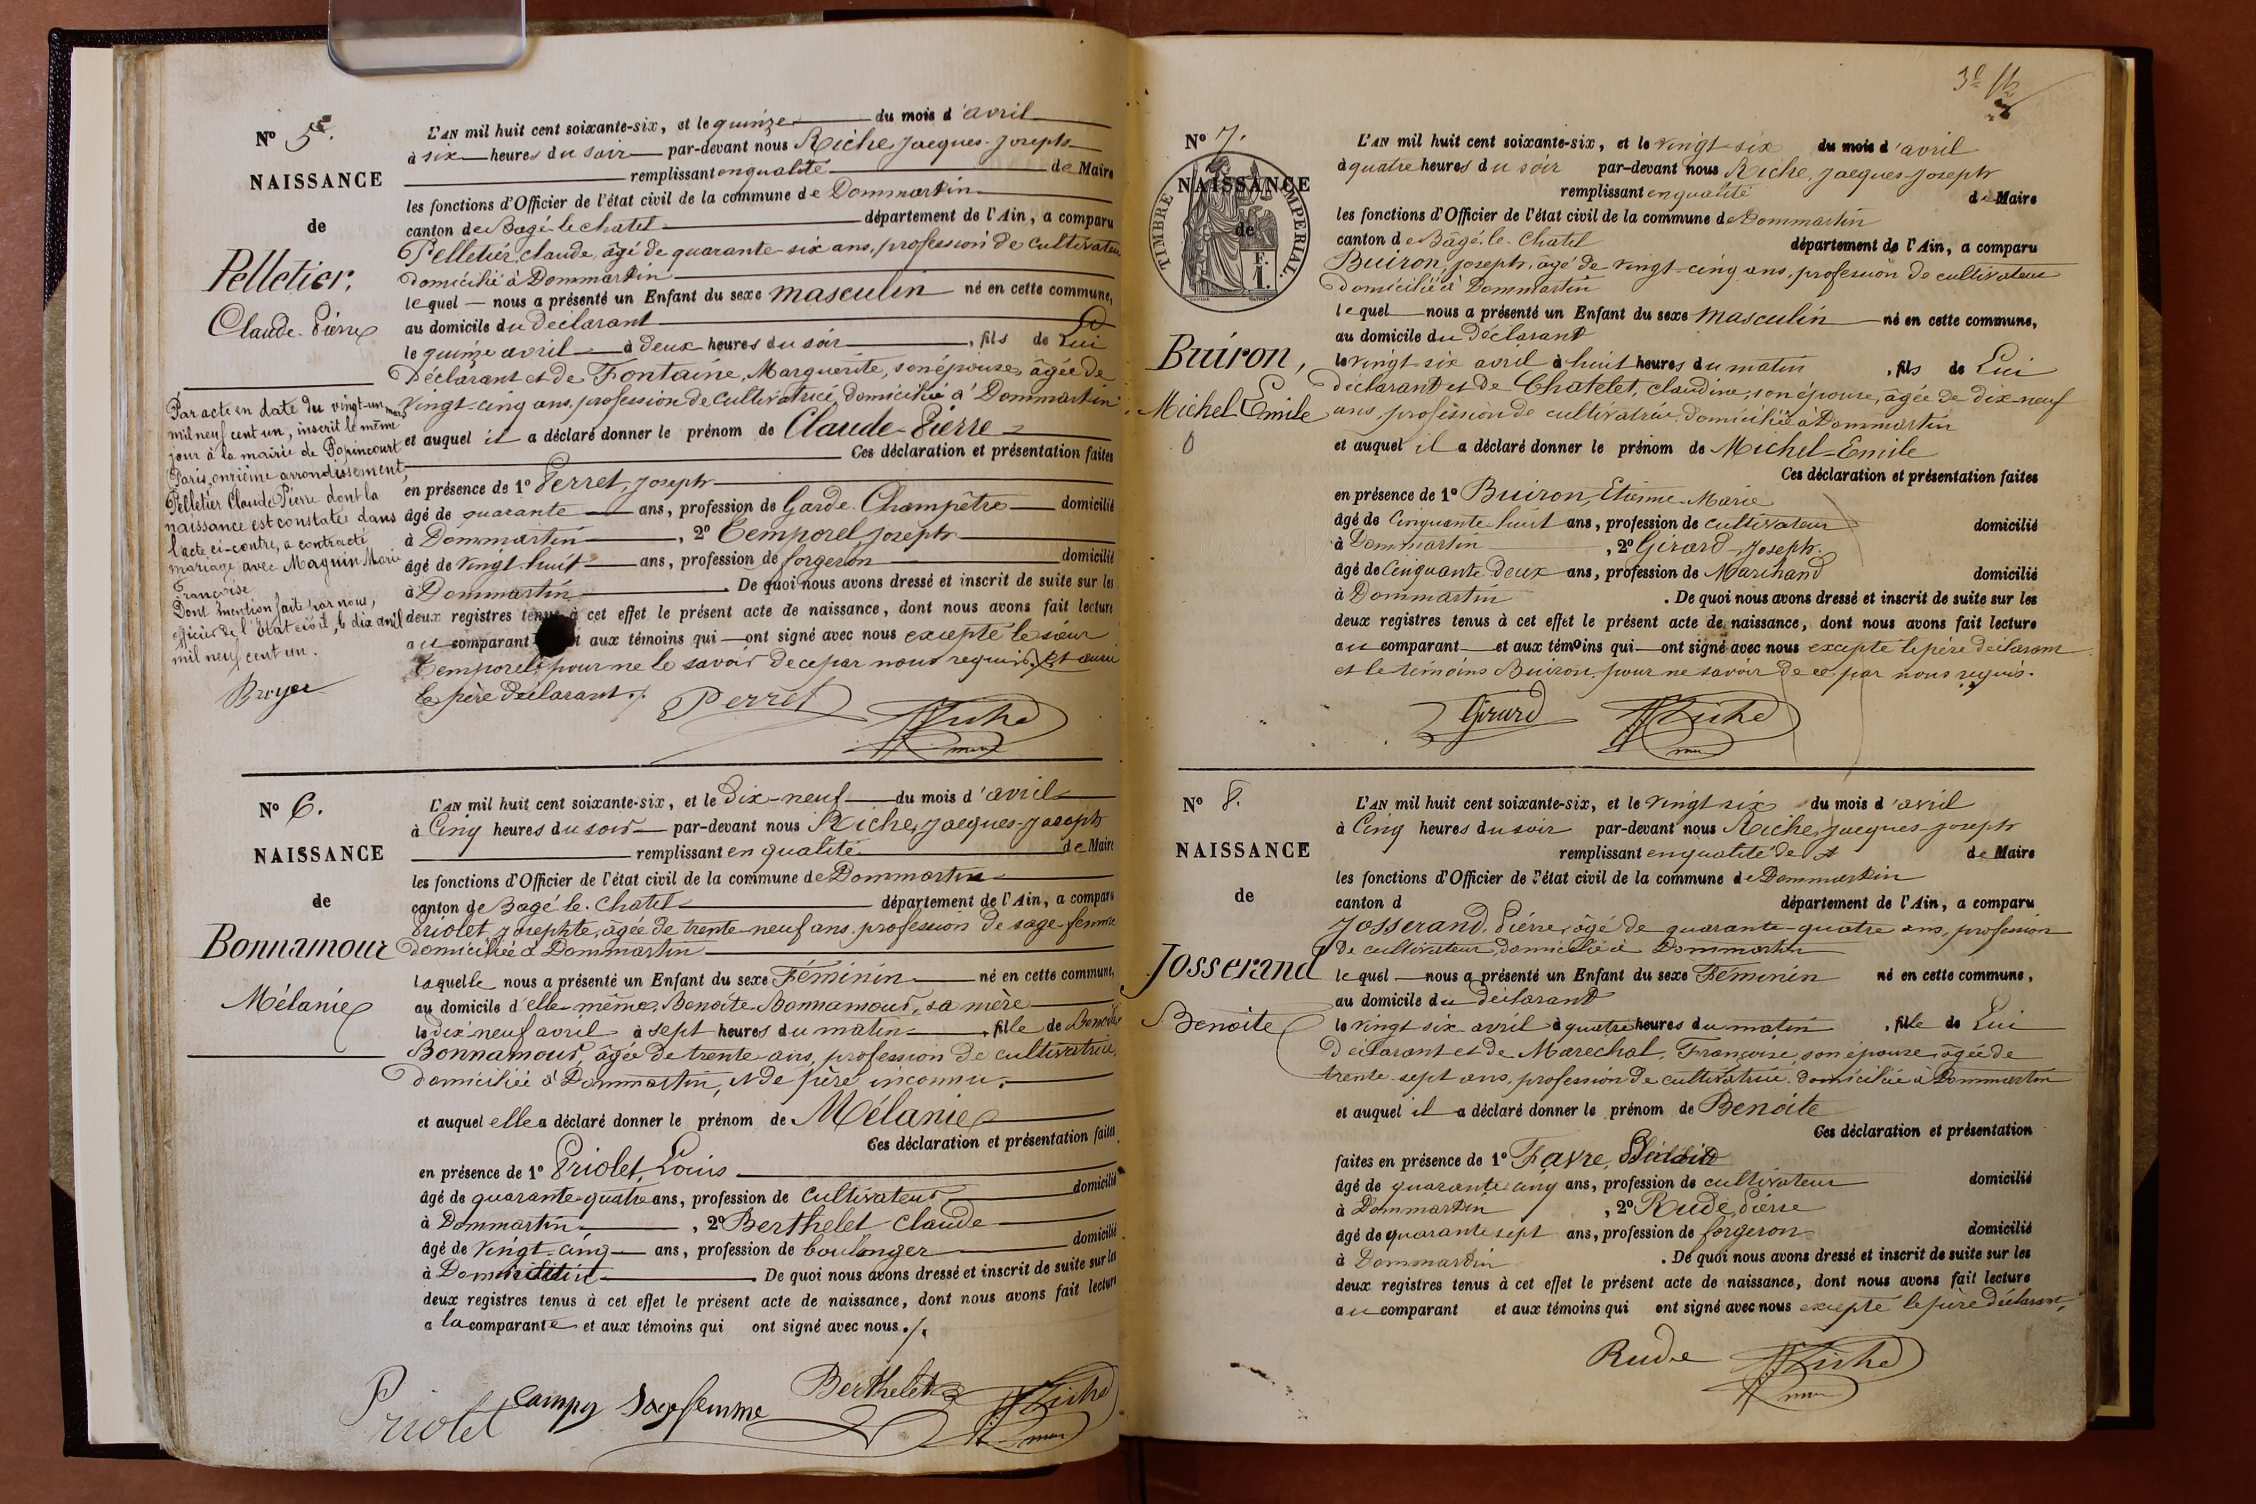 N° 5.
NAISSANCE
de
Pelletier,
Claude-Pierre
Par acte en date du vingt-un mars
mil neuf cent un, inscrit le même
jour à la mairie de Popincourt
Paris, onzième arrondissement,
Pelletier Claude Pierre dont la
naissance est constatée dans
l'acte ci-contre, a contracté
mariage avec Maguin Marie
Françoise.
Dont mention faite par nous,
officier de l'état civil, le dix avril
mil neuf cent un.
Broyer
L'AN mil huit cent soixante-six, et le quinze du mois d'avril
à six heures du soir par-devant nous Riche, Jacques-Joseph
remplissant en qualité de Maire
les fonctions d'Officier de l'état civil de la commune de Dommartin
canton de Bagé-le-chatel département de l'Ain, a comparu
Pelletier, claude, âgé de quarante-six ans, profession de cultivateur
domicilié à Dommartin
lequel nous a présenté un Enfant du sexe masculin né en cette commune,
au domicile du déclarant
le quinze avril à deux heures du soir, fils de Lui
Déclarant et de Fontaine, Marguerite, son épouse, âgée de
vingt-cinq ans, profession de cultivatrice, domiciliée à Dommartin
et auquel il a déclaré donner le prénom de Claude-Pierre
Ces déclaration et présentation faites
en présence de 1° Perret, Joseph
âgé de quarante ans, profession de Garde-Champêtre domicilié
à Dommartin, 2° Temporel, Joseph
âgé de vingt-huit ans, profession de forgeron domicilié
à Dommartin. De quoi nous avons dressé et inscrit de suite sur les
deux registres tenus à cet effet le présent acte de naissance, dont nous avons fait lecture
au comparant et aux témoins qui ont signé avec nous excepté le sieur
Temporel, pour ne le savoir de ce par nous requis, et aussi
le père déclarant./.
Perret Riche
maire
N° 6.
NAISSANCE
de
Bonnamour
Mélanie
L'AN mil huit cent soixante-six, et le dix-neuf du mois d'avril
à Cinq heures du soir par-devant nous Riche, Jacques-Joseph
remplissant en qualité de Maire
les fonctions d'Officier de l'état civil de la commune de Dommartin
canton de Bagé-le-Chatel département de l'Ain, a comparu
Priolet Josephte, âgée de trente-neuf ans, profession de sage-femme
domiciliée à Dommartin
laquelle nous a présenté un Enfant du sexe Féminin né en cette commune,
au domicile d'elle-même, Benoite Bonnamour, sa mère
le dix-neuf avril à sept heures du matin, fille de Benoite
Bonnamour, âgée de trente ans, profession de cultivatrice,
domiciliée à Dommartin, et de père inconnu.
et auquel elle a déclaré donner le prénom de Mélanie
Ces déclaration et présentation faites
en présence de 1° Priolet, Louis
âgé de quarante-quatre ans, profession de cultivateur domicilié
à Dommartin, 2° Berthelet Claude
âgé de vingt-cinq ans, profession de boulanger domicilié
à Dommartin. De quoi nous avons dressé et inscrit de suite sur les
deux registres tenus à cet effet le présent acte de naissance, dont nous avons fait lecture
a la comparante et aux témoins qui ont signé avec nous./.
Priolet Campoy sage femme Berthelet Riche
maire
N° 7.
TIMBRE IMPERIAL.
F. 1.
NAISSANCE
de
Buiron,
Michel-Emile
L'AN mil huit cent soixante-six, et le vingt-six du mois d'avril
à quatre heures du soir par-devant nous Riche, Jacques-Joseph
remplissant en qualité de Maire
les fonctions d'Officier de l'état civil de la commune de Dommartin
canton de Bâgé-le-Chatel département de l'Ain, a comparu
Buiron, joseph, âgé de vingt-cinq ans, profession de cultivateur
domicilié à Dommartin
lequel nous a présenté un Enfant du sexe masculin né en cette commune,
au domicile du déclarant
le vingt-six avril à huit heures du matin, fils de Lui
déclarant et de Chatelet, claudine, son épouse, âgée de dix-neuf
ans, profession de cultivatrice domiciliée à Dommartin
et auquel il a déclaré donner le prénom de Michel-Emile
Ces déclaration et présentation faites
en présence de 1° Buiron, Etienne-Marie
âgé de Cinquante-huit ans, profession de cultivateur domicilié
à Dommartin, 2° Girard, Joseph.
âgé de Cinquante-deux ans, profession de Marchand domicilié
à Dommartin. De quoi nous avons dressé et inscrit de suite sur les
deux registres tenus à cet effet le présent acte de naissance, dont nous avons fait lecture
au comparant et aux témoins qui ont signé avec nous excepté le père déclarant
et le témoins Buiron, pour ne savoir de ce par nous requis.
Girard Riche
maire
N° 8.
NAISSANCE
de
Josserand
Benoite
L'AN mil huit cent soixante-six, et le vingt-six du mois d'avril
à Cinq heures du soir par-devant nous Riche, Jacques-Joseph
remplissant en qualité de de Maire
les fonctions d'Officier de l'état civil de la commune de Dommartin
canton d département de l'Ain, a comparu
Josserand, Pierre, âgé de quarante-quatre ans, profession
de cultivateur, domicilié à Dommartin
lequel nous a présenté un Enfant du sexe Féminin né en cette commune,
au domicile du déclarant
le vingt-six avril à quatre heures du matin, fille de Lui
déclarant et de Marechal, Françoise, son épouse, âgée de
trente-sept ans, profession de cultivatrice domiciliée à Dommartin
et auquel il a déclaré donner le prénom de Benoite
Ces déclaration et présentation
faites en présence de 1° Favre,
âgé de quarante-cinq ans, profession de cultivateur domicilié
à Dommartin, 2° Rude, Pierre
âgé de quarante-sept ans, profession de forgeron domicilié
à Dommartin. De quoi nous avons dressé et inscrit de suite sur les
deux registres tenus à cet effet le présent acte de naissance, dont nous avons fait lecture
au comparant et aux témoins qui ont signé avec nous excepté le père déclarant,
Rude Riche
maire